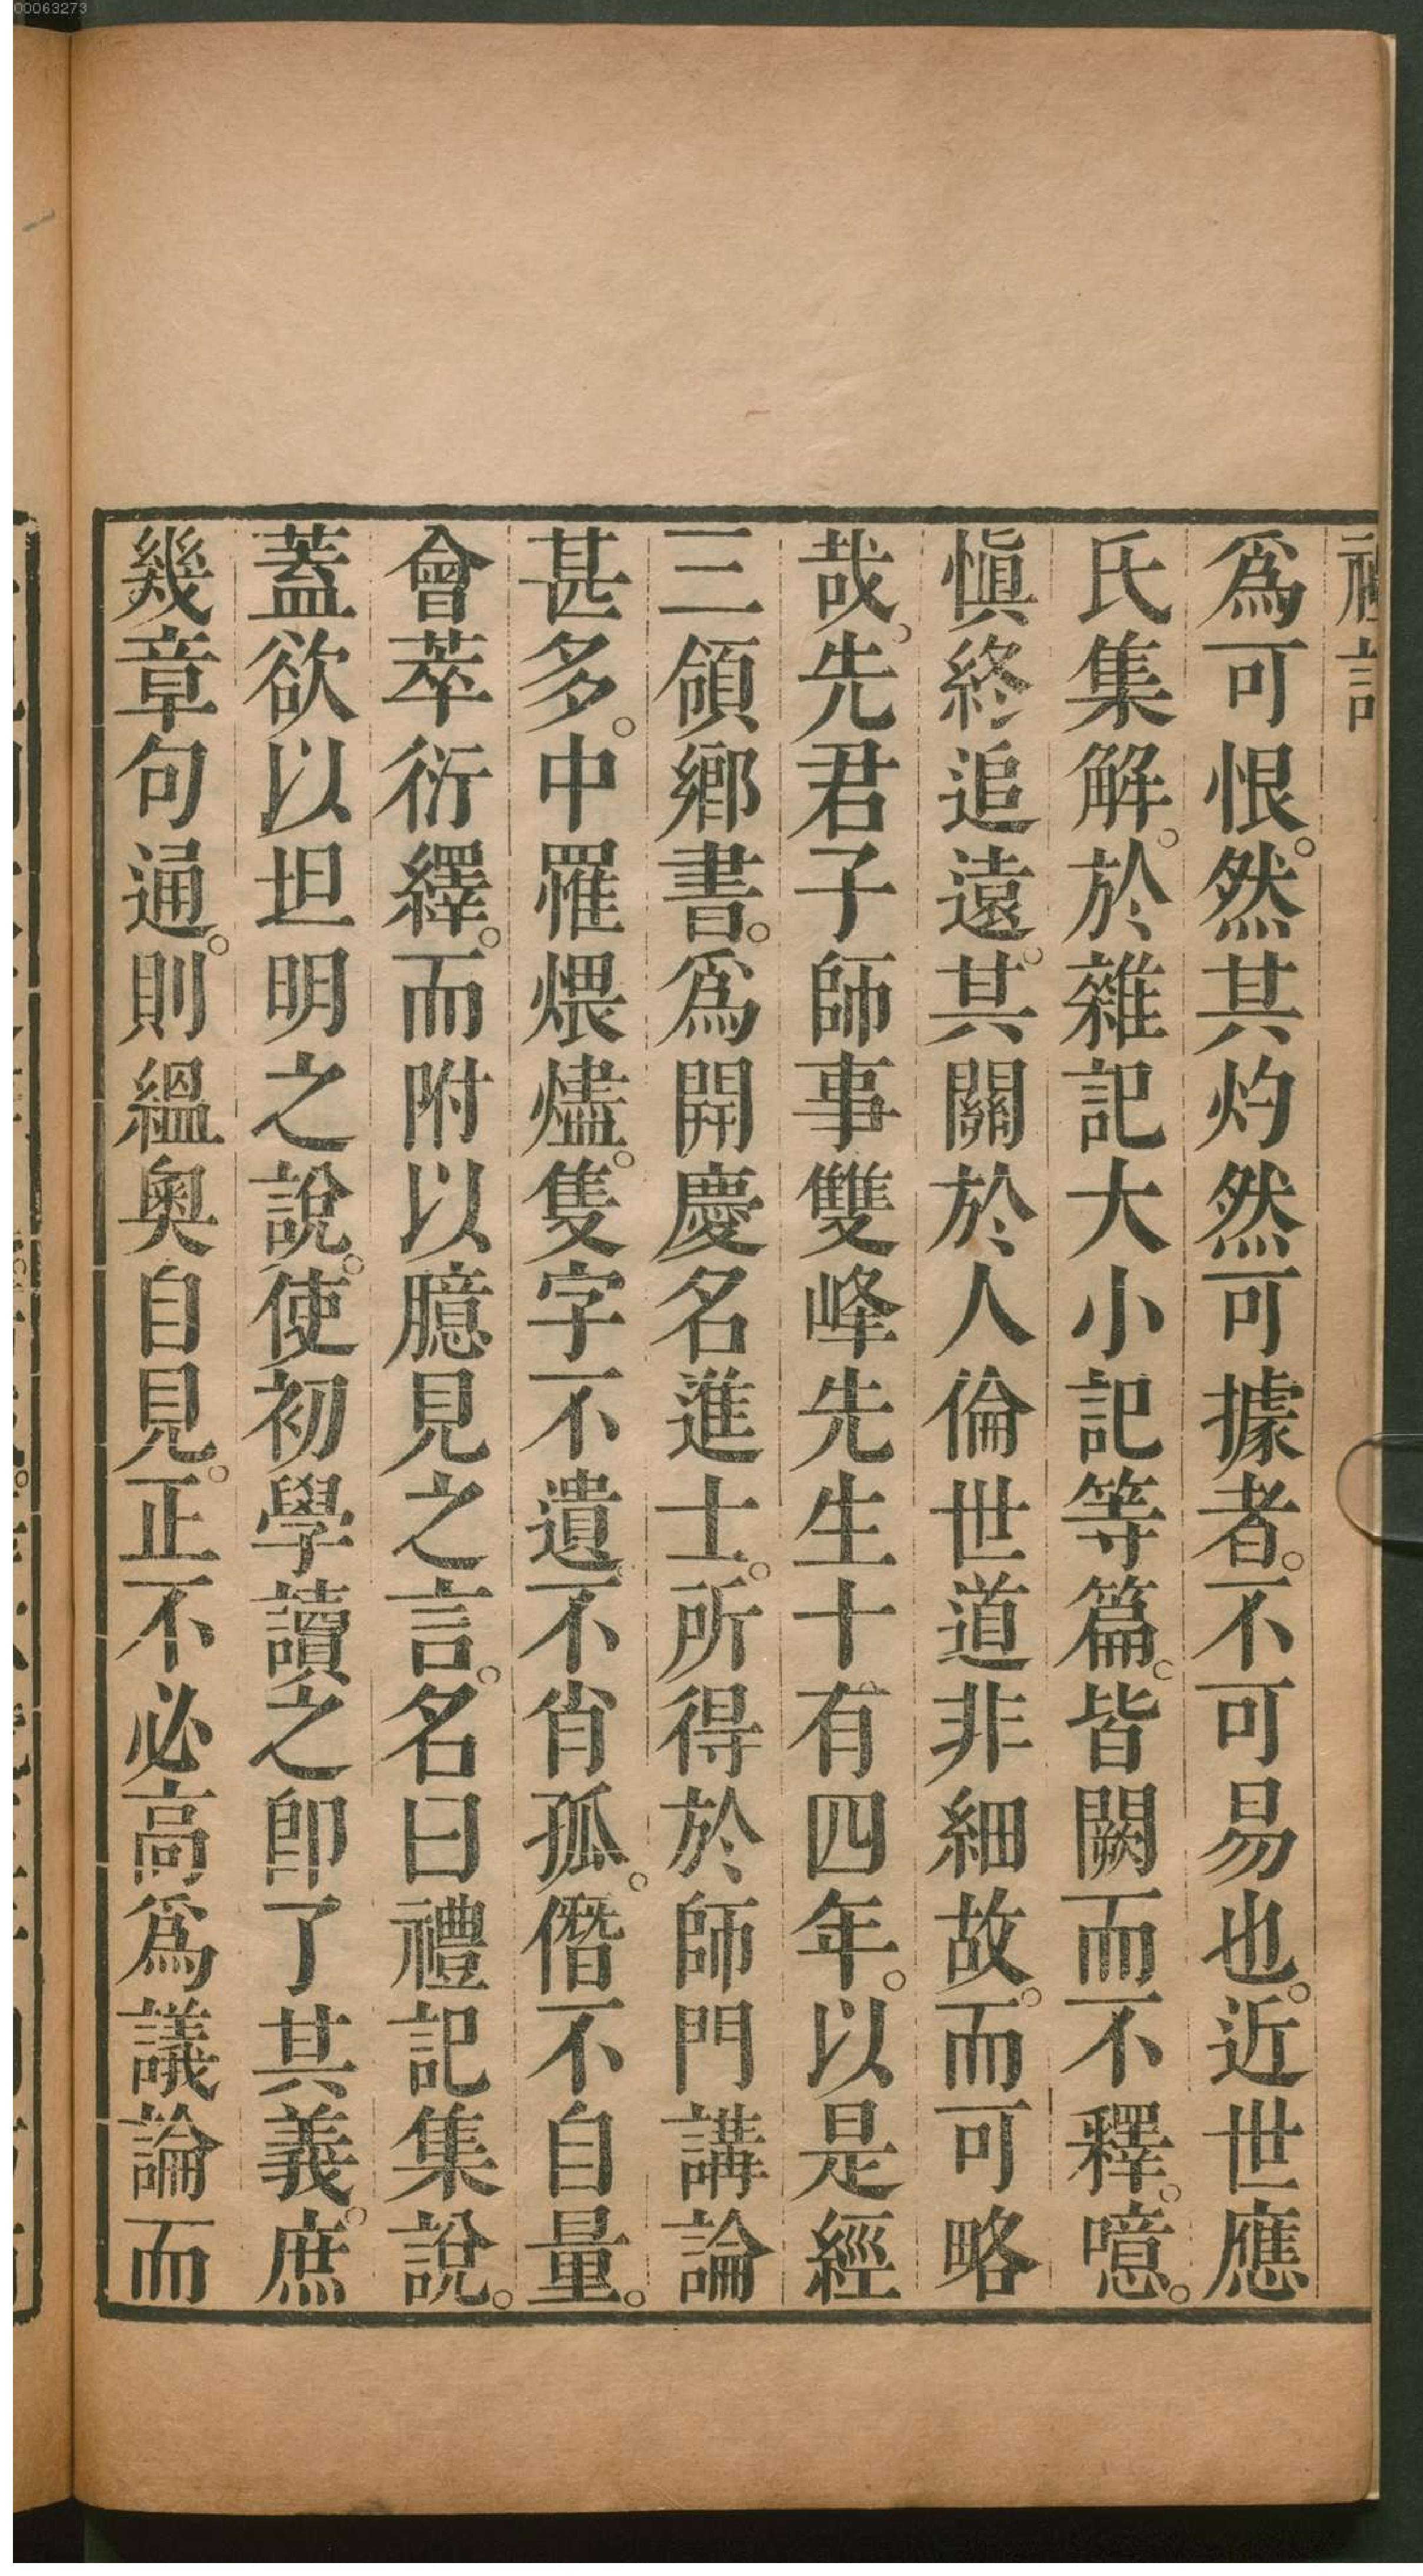 00063273
禮記
爲可恨。然其灼然可據者。不可易也。近世應
氏集解。於雜記大小記等篇。皆闕而不釋。噫。
愼終追遠。其關於人倫世道非細故。而可略
哉。先君子師事雙峰先生十有四年。以是經
三領鄉書。爲開慶名進士。所得於師門講論
甚多。中罹煨燼。隻字不遺。不肖孤。僭不自量。
會萃衍繹。而附以臆見之言。名曰禮記集說。
蓋欲以坦明之說。使初學讀之卽了其義。庶
幾章句通。則縕奧自見。正不必高爲議論而